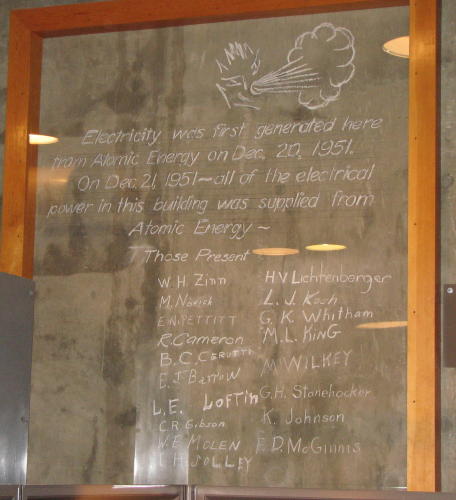 Electricity was first generated here
from Atomic Energy on Dec. 20, 1951.
On Dec. 21, 1951~all of the electrical
power in this building was supplied from
Atomic Energy ~
Those Present
W. H Zinn
M. Novick
E. N. PETTITT
R. Cameron
B. C. CERUTTI
E. J BARROW
L. E. LOFTIN
C. R. Gibson
W. E. MOLEN
JOLLEY
H V Lichtenberger
L. J. Koch
G. K Whitham
M. L. KING
M WILKEY
G. H. Stonehocker
K. Johnson
F. D. McGinnis